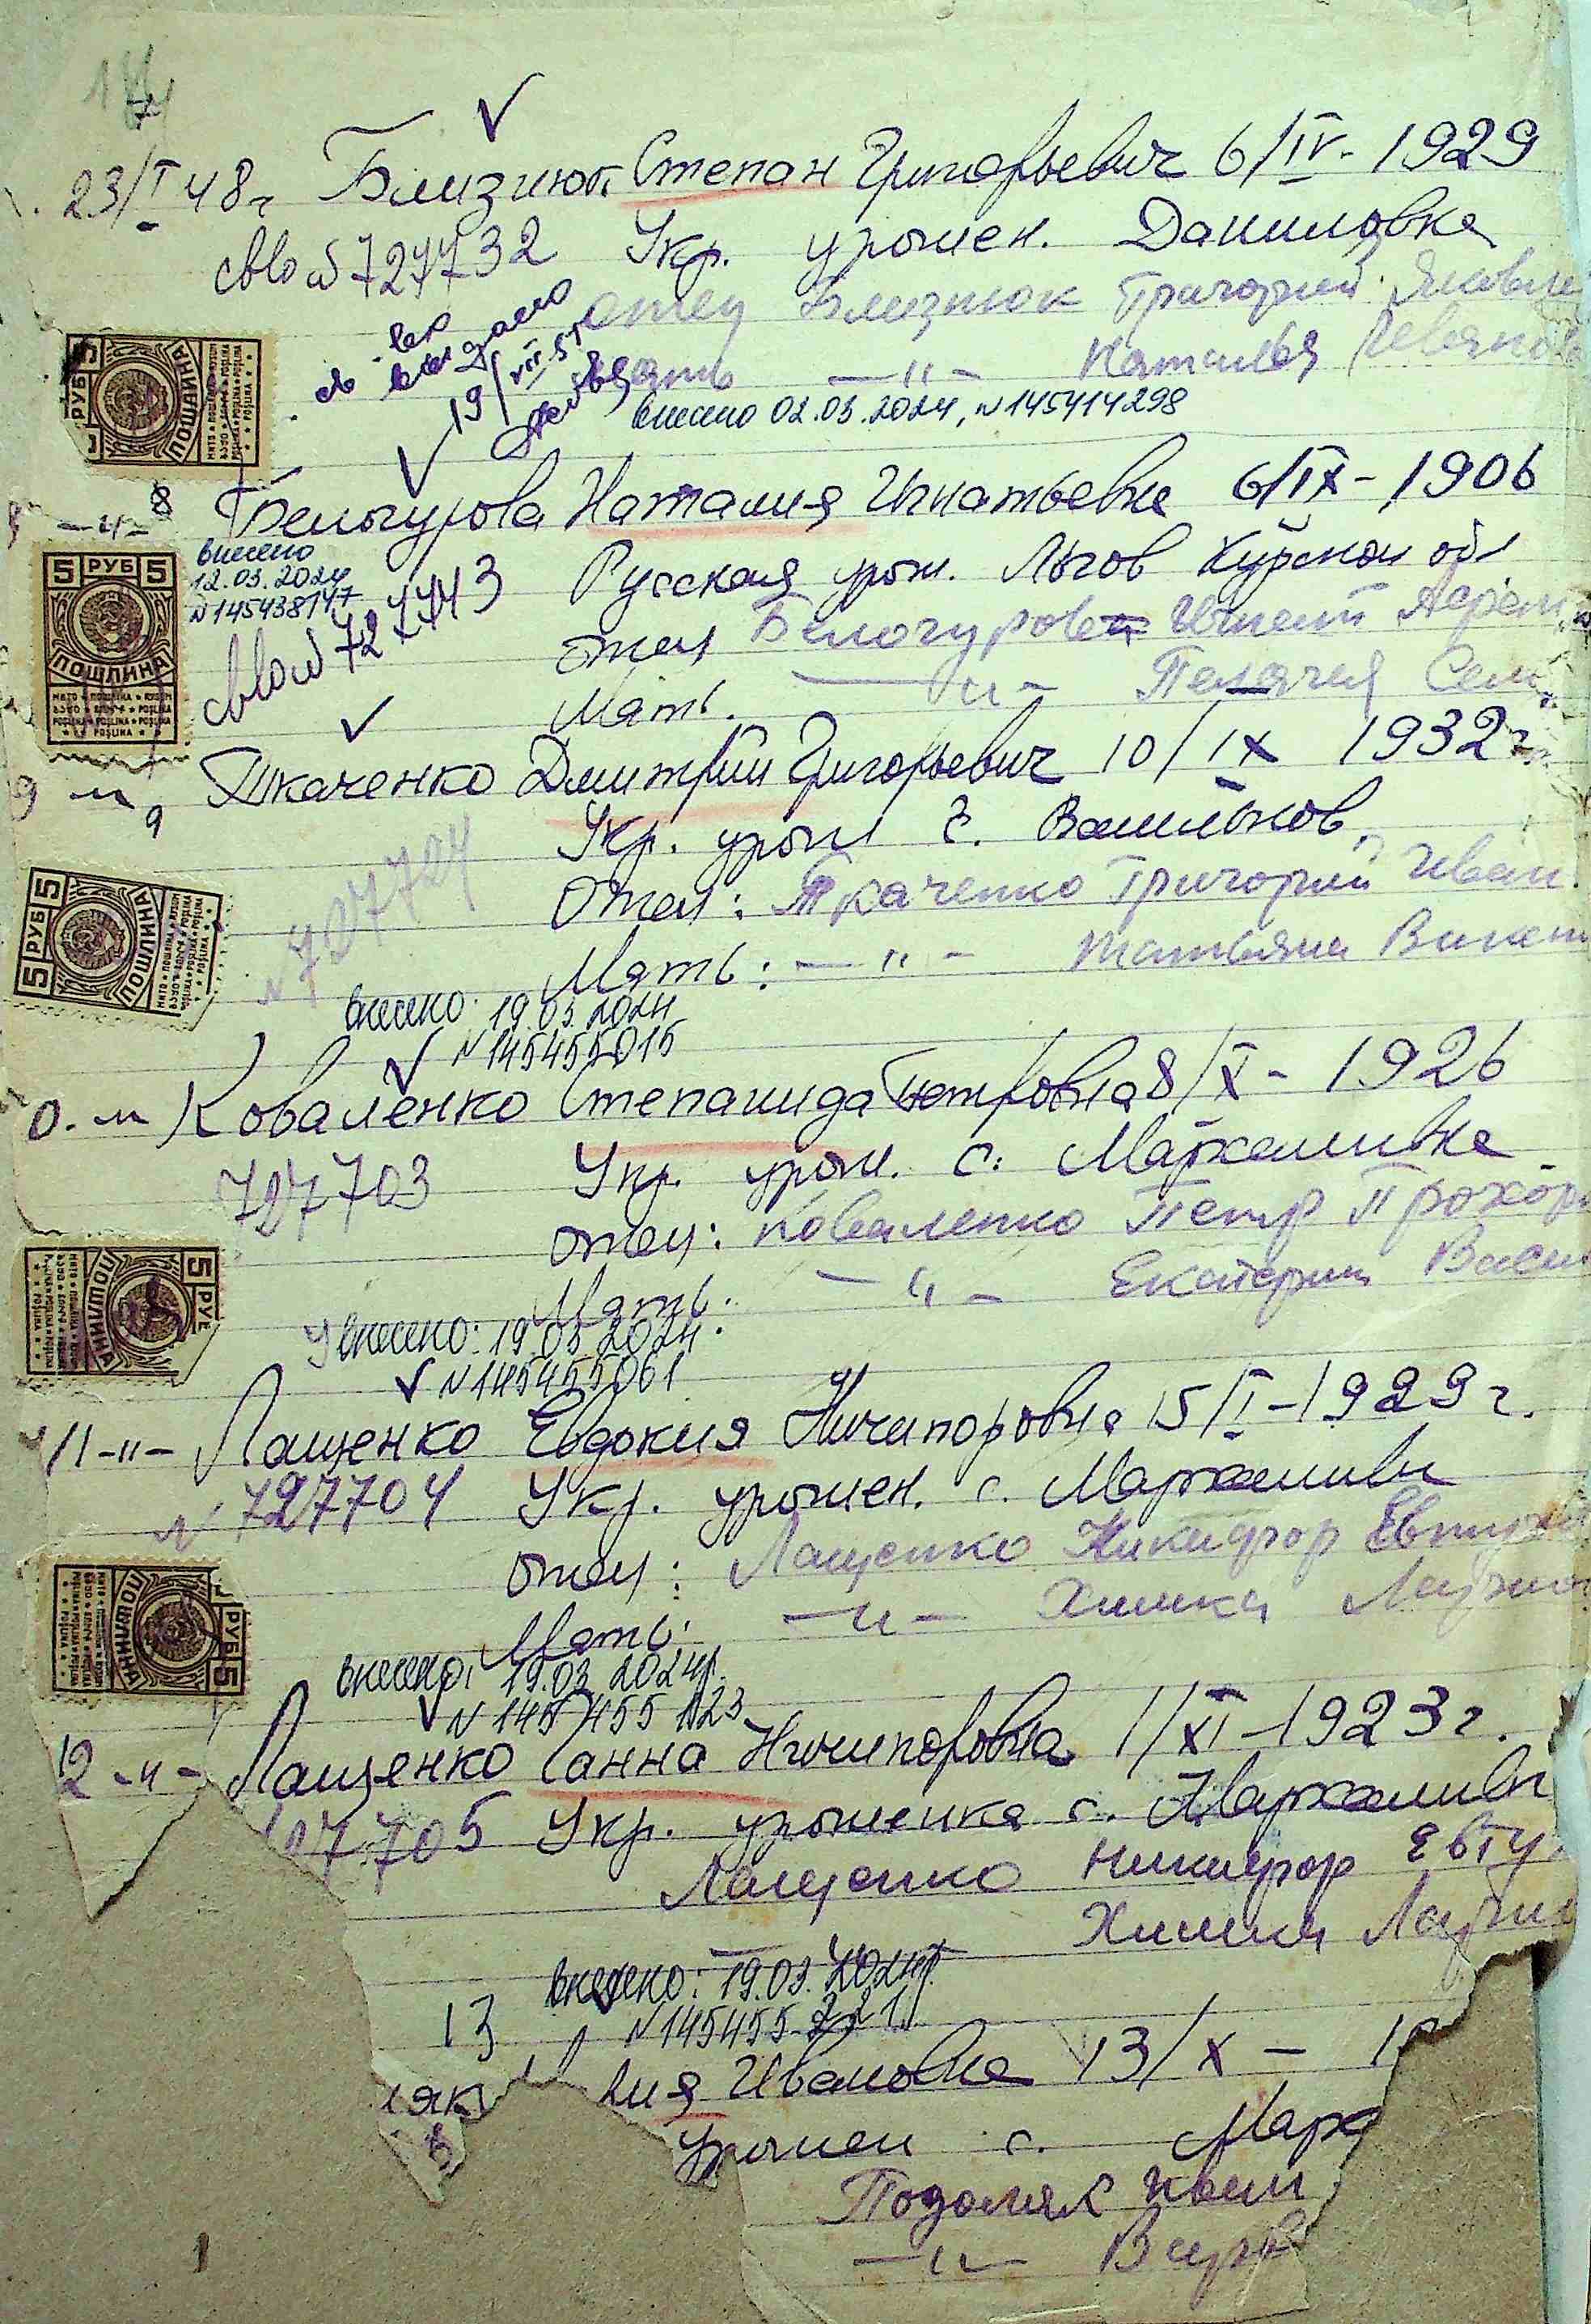 23/I 48г Близнюк Степан Григорьевич 6/IV - 1929
727732 Укр. урожен. Даниловка
отец Близнюк Григорий Яковле
мать —"— Наталья
св-во выдано 19/VII 57
внесено 02.03.2024, N145414298
8 —"— Белогурова Наталия Игнатьевна 6/IX - 1906
5 РУБ 5
ПОШЛИНА
внесено
12.03.2024
N145438147
727743 Русская урож. Льгов Курской обл
отец Белогуров Игнат
Мать. —"— Пелагея Сем
9 —"— Ткаченко Дмитрий Григорьевич 10/IX 1932г
Укр. урож г. Васильков
N727724 Отец: Ткаченко Григорий Иван.
Мать: —"— Татьяна
внесено: 19.03.2024
N145455015
0. —"— Коваленко Степанида Петровна 8/X - 1926
727703 Укр. урож. с. Мархаливка
отец: Коваленко Петр Прохор
Мать: —"— Екатерина Васи
внесено: 19.03.2024.
N145455061
11 —"— Лащенко Евдокия Ничипоровна 15/II - 1929г.
N 727704 Укр. урожен. с. Мархаливки
отец: Лащенко Никифор Евтух
Мать: —"— Химка
внесено: 19.03.2024р.
N145455123
12 —"— Лащенко Ганна Ничипоровна 1/XI - 1923г.
27705 Укр. уроженка с. Мархаливки
Лащенко Никифор Евту
Химка
внесено: 19.03.2024р.
N145455221
13
ляк Ивановна 13/X - 1
урожен с. Марх
Подоляк Иван
—"—